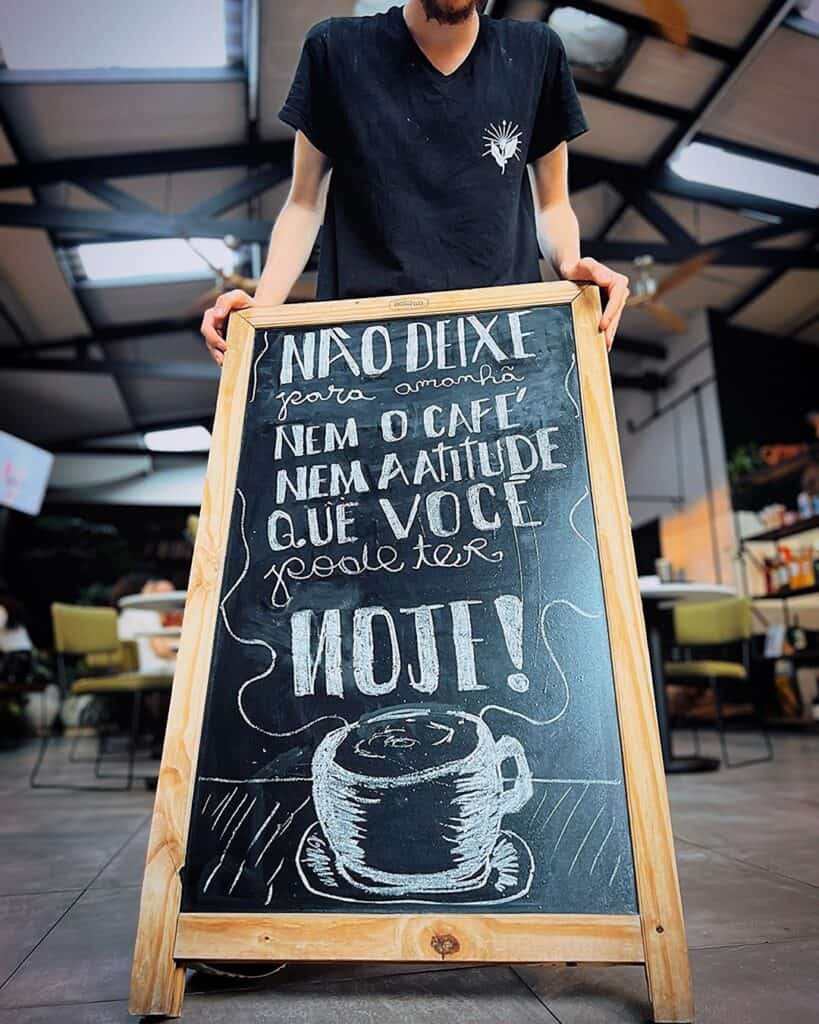 NÃO DEIXE
para amanhã
NEM O CAFÉ
NEM A ATITUDE
QUE VOCÊ
pode ter
HOJE!